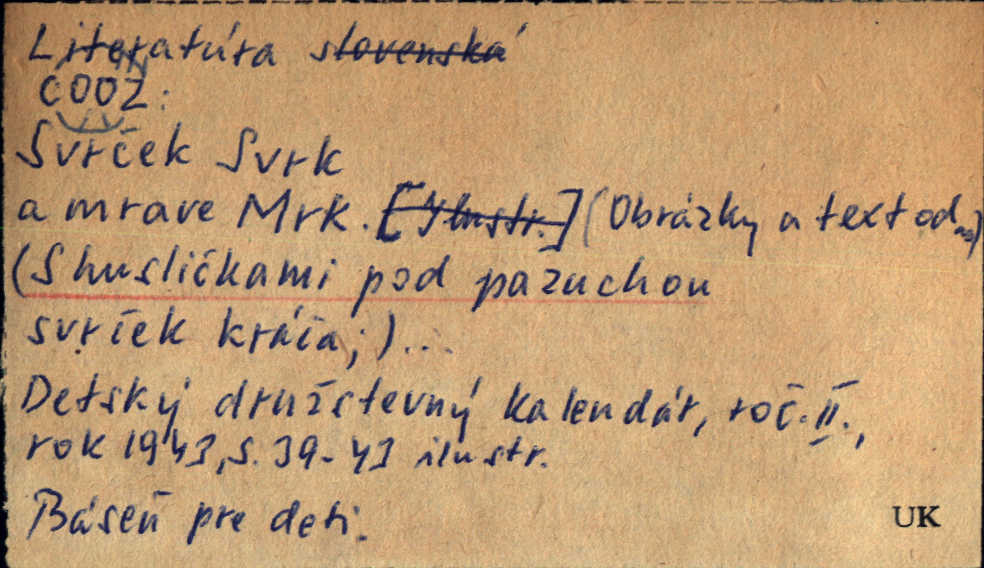 Literatúra slovenská
COOZ:
Svrček Svrk
a mrave Mrk. [Ilustr.] (Obrázky a text od
(S husličkami pod pazuchou
svrček kráča;)...
Detský družstevný kalendár, roč. II.,
rok 1943, s. 39-43 ilustr.
Báseň pre deti.
UK